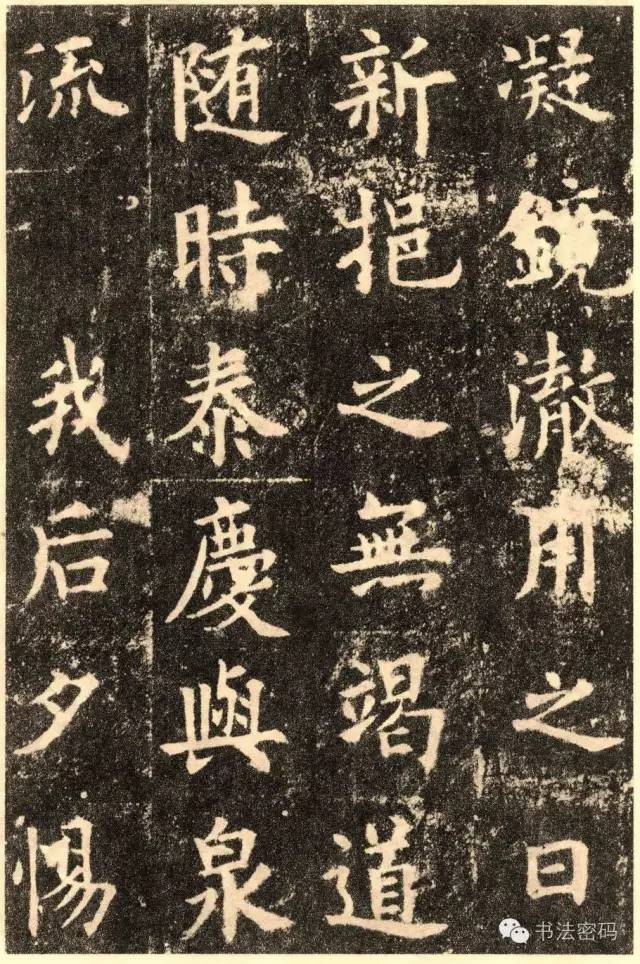 凝鏡澈用之日
新挹之無竭道
随時泰慶與泉
流 我后夕惕
书法密码